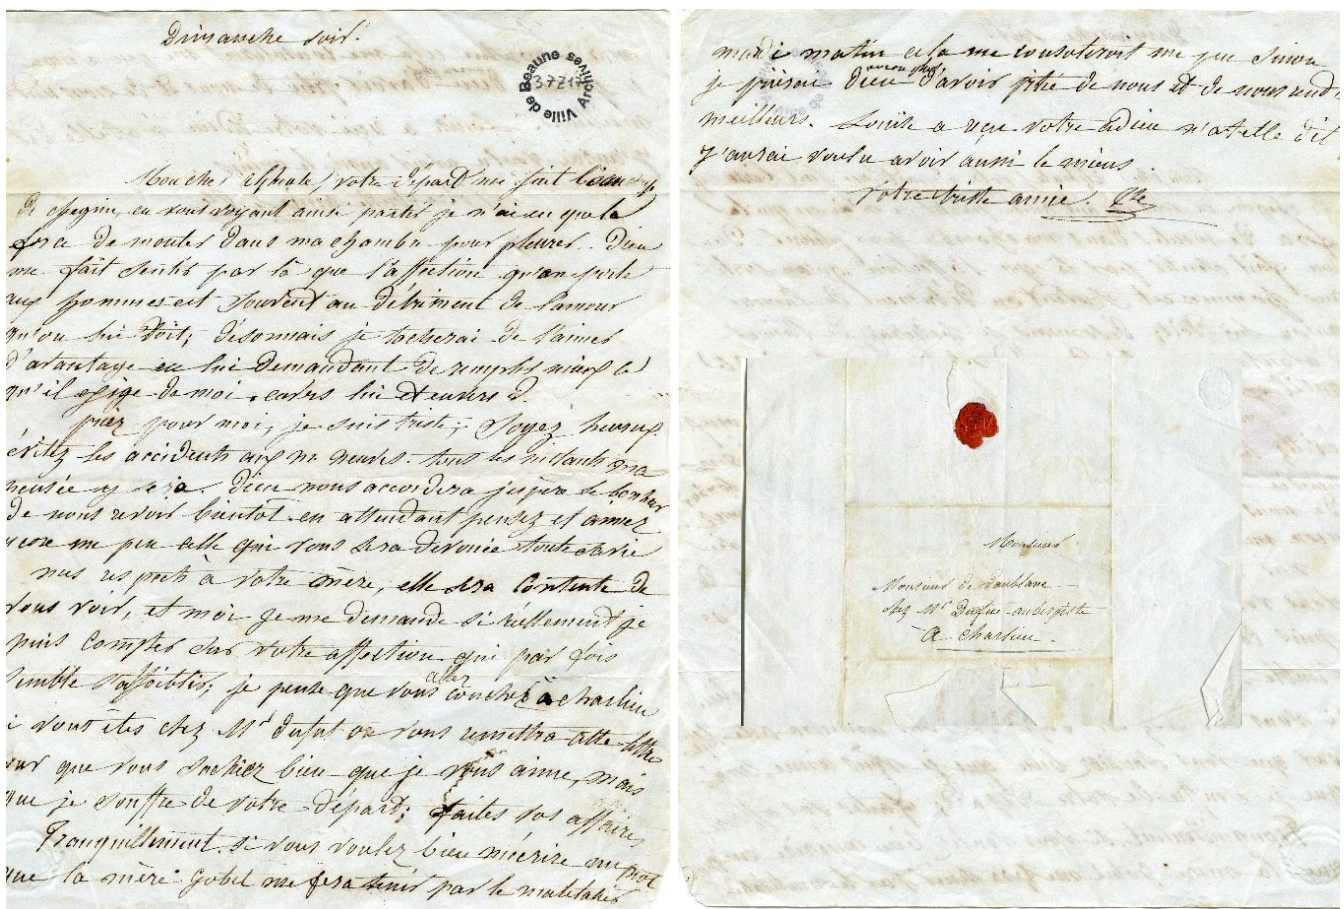 Dimanche soir.
Ville de Beaune Archives
37Z17
Mon cher Alphonse, votre départ me fait beaucoup
de chagrin, en vous voyant ainsi partir je n'ai eu que la
force de monter dans ma chambre pour pleurer. Dieu
me fait sentir par là que l'affection qu'on porte
aux hommes est souvent au détriment de l'amour
qu'on lui doit, désormais je tacherai de l'aimer
d'avantage en lui demandant de remplir mieux ce
qu'il exige de moi, envers lui et envers
priez pour moi, je suis triste; soyez heureux
évitez les accidents aux tous les instants ma
pensée y sera. Dieu nous accordera j'espère le bonheur
de nous revoir bientot en attendant pensez et aimez
encore un peu celle qui vous sera devouée toute sa vie
mes respects à votre mère, elle sera contente de
vous voir, et moi je me demande si réellement je
puis compter sur votre affection qui par fois
semble s'affoiblir; je pense que vous allez coucher à charlieu
si vous êtes chez Mr on vous remettra cette lettre
pour que vous sachiez bien que je vous aime, mais
que je souffre de votre départ; faites vos affaires
Tranquillement. si vous voulez bien m'écrire un mot
que la mère gobel me fera tenir par le
mardi matin cela me consoleroit un peu sinon
je prierai Dieu d'avoir pitié de nous et de nous rendre
meilleurs. Louise a reçu votre adieu m'a-t-elle dit
j'aurai voulu avoir aussi le mien.
votre triste amie.
Monsieur
Monsieur de
chez Mr aubergiste
à Charlieu.